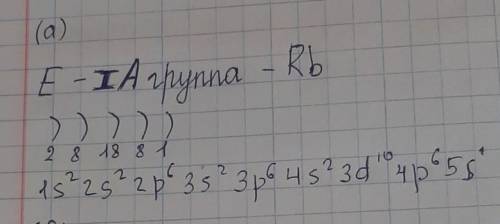 (а)
E - IA группа - Rb
) ) ) ) )
2 8 18 8 1
1s² 2s² 2p⁶ 3s² 3p⁶ 4s² 3d¹⁰ 4p⁶ 5s¹